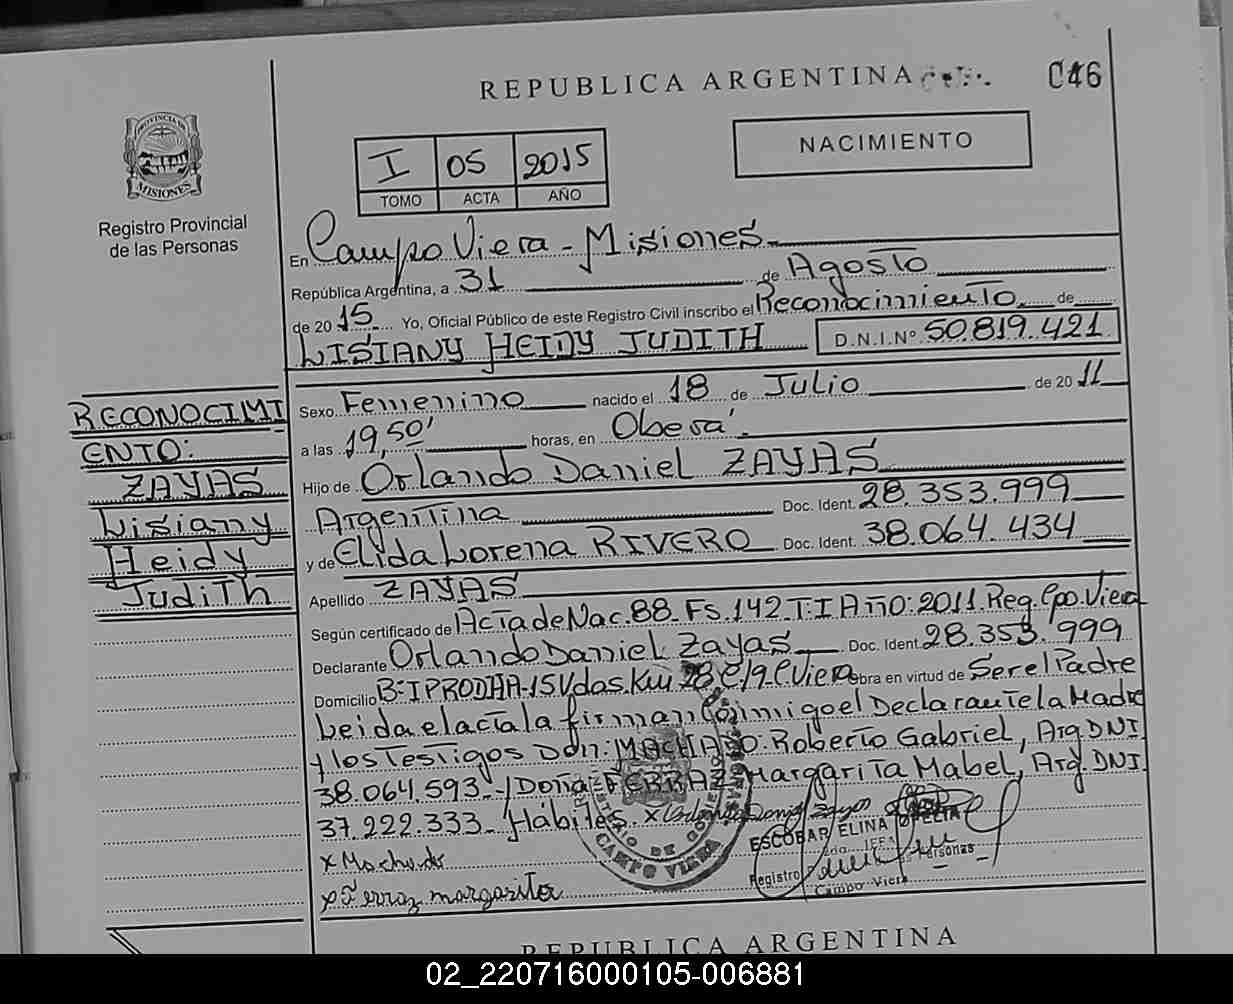 REPUBLICA ARGENTINA
046
PROVINCIA DE
MISIONES
Registro Provincial
de las Personas
I 05 2015
TOMO ACTA AÑO
NACIMIENTO
En Campo Viera - Misiones
República Argentina, a 31 de Agosto
de 2015 Yo, Oficial Público de este Registro Civil inscribo el Reconocimiento de
LISIANY HEIDY JUDITH D.N.I.Nº 50.819.421
RECONOCIMI
ENTO:
ZAYAS
Lisiany
Heidy
Judith
Sexo Femenino nacido el 18 de Julio de 2011
a las 19,50' horas, en Oberá
Hijo de Orlando Daniel ZAYAS
Argentina Doc. Ident. 28.353.999
y de Elida Lorena RIVERO Doc. Ident. 38.064.434
Apellido ZAYAS
Según certificado de Acta de Nac. 88. Fs. 142. T: I Año: 2011. Reg. Cpo. Viera
Declarante Orlando Daniel Zayas Doc. Ident. 28.353.999
Domicilio B: IPRODHA-15Vdas. Km 28 C/9 C Viera Obra en virtud de Ser el Padre
Leida el acta la firman conmigo el Declarante la Madre
y los Testigos Don: MACHADO: Roberto Gabriel, Arg DNI
38.064.593 - / Doña: FERRAZ Margarita Mabel, Arg. DNI
37.222.333 - Hábiles. x
ESCOBAR ELINA OFELIA
x Machado
Registro Personas
CAMPO VIERA
Campo Viera
x Ferraz margarita
REPUBLICA ARGENTINA
02_220716000105-006881